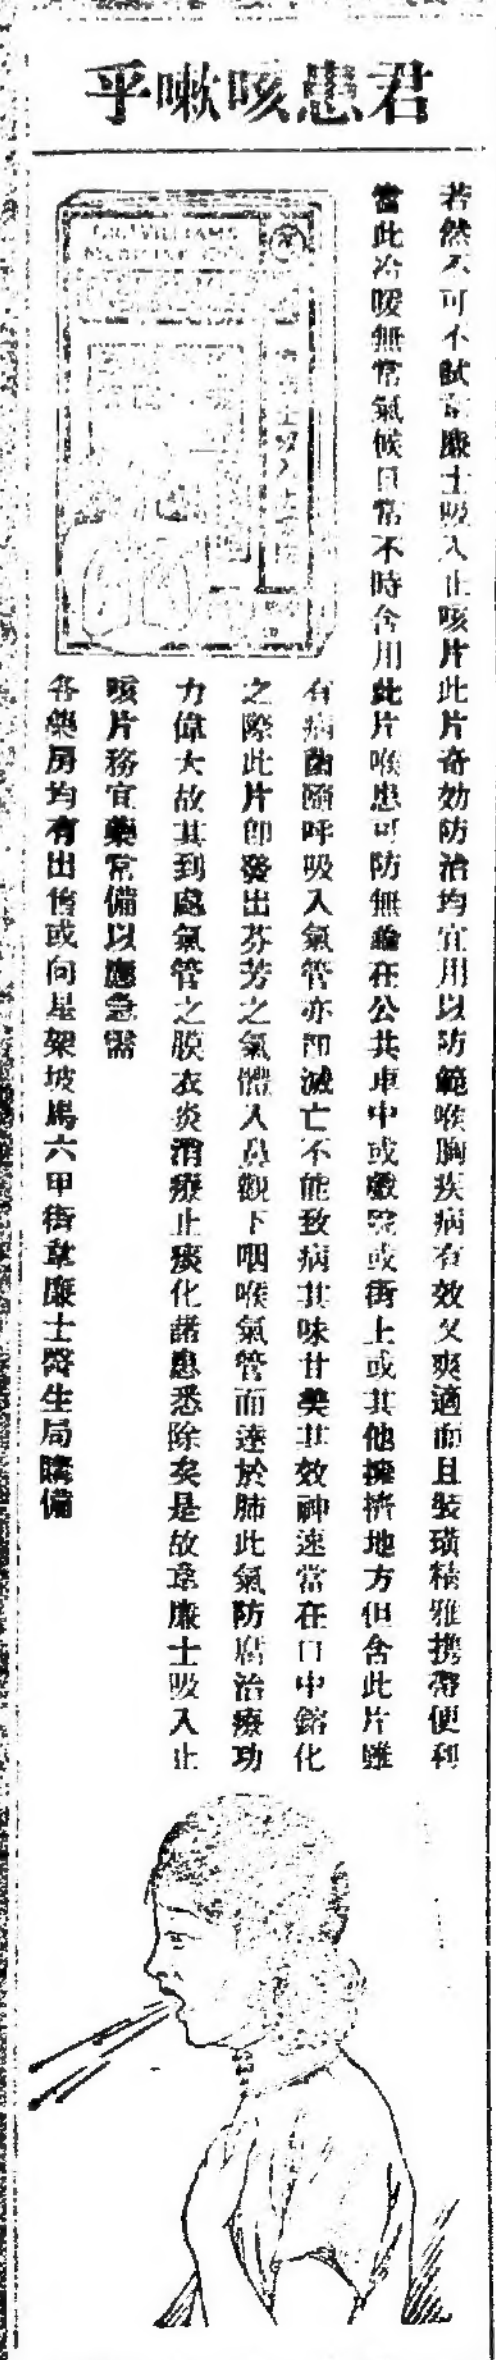 君患咳嗽乎
若然不可不試韋廉士吸入止咳片此片奇効防治均宜用以防範喉胸疾病有效又爽適而且裝璜精雅携帶便利
當此冷暖無常氣候日常不時含用此片喉患可防無論在公共車中或戲院或街上或其他擁擠地方但含此片雖
有病菌隨呼吸入氣管亦卽滅亡不能致病其味甘美其效神速當在口中鎔化
之際此片卽發出芬芳之氣體入鼻觀下咽喉氣管而達於肺此氣防腐治療功
力偉大故其到處氣管之膜衣炎消療止痰化諸患悉除矣是故韋廉士吸入止
咳片務宜藥常備以應急需
各藥房均有出售或向星架坡馬六甲街韋廉士醫生局購備
DR. WILLIAMS